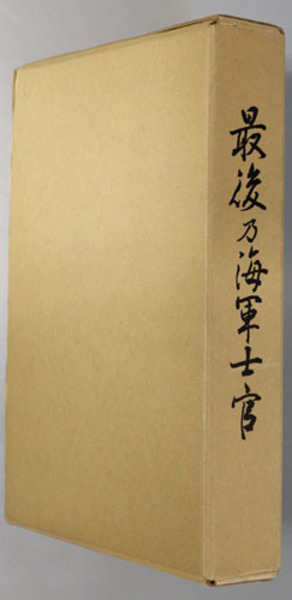 最後乃海軍士官